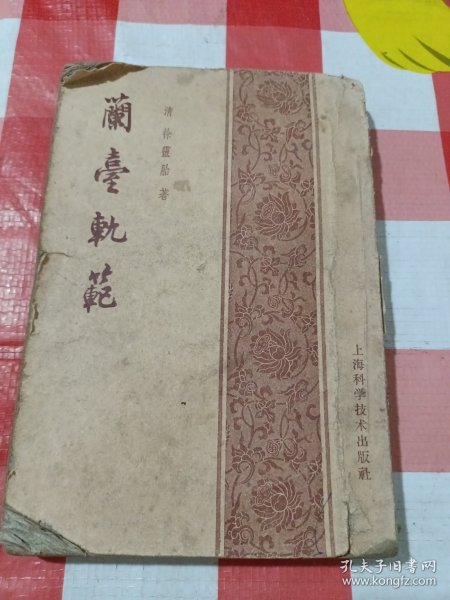 蘭臺軌範
清 徐靈胎 著
上海科学技术出版社
孔夫子旧书网
www.kongfz.com